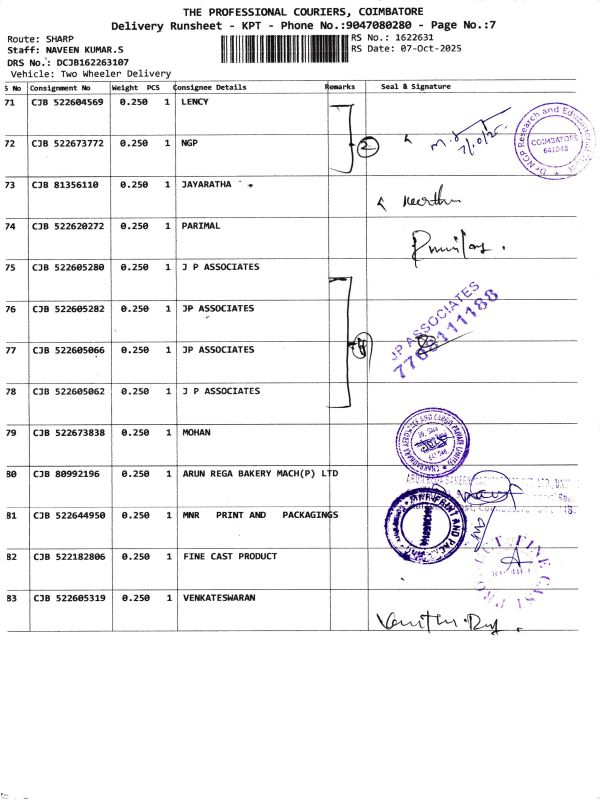 THE PROFESSIONAL COURIERS, COIMBATORE
Delivery Runsheet - KPT - Phone No.:9047080280 - Page No.:7
Route: SHARP
RS No.: 1622631
Staff: NAVEEN KUMAR.S
RS Date: 07-Oct-2025
DRS No.: DCJB162263107
Vehicle: Two Wheeler Delivery
S No Consignment No Weight PCS Consignee Details Remarks Seal & Signature
71 CJB 522604569 0.250 1 LENCY
72 CJB 522673772 0.250 1 NGP 2 7/10/25 Dr NGP Research and COIMBATORE 641048
73 CJB 81356110 0.250 1 JAYARATHA
74 CJB 522620272 0.250 1 PARIMAL
75 CJB 522605280 0.250 1 J P ASSOCIATES
76 CJB 522605282 0.250 1 JP ASSOCIATES JP ASSOCIATES
77 CJB 522605066 0.250 1 JP ASSOCIATES
78 CJB 522605062 0.250 1 J P ASSOCIATES
79 CJB 522673838 0.250 1 MOHAN
80 CJB 80992196 0.250 1 ARUN REGA BAKERY MACH(P) LTD
81 CJB 522644950 0.250 1 MNR PRINT AND PACKAGINGS
82 CJB 522182806 0.250 1 FINE CAST PRODUCT
83 CJB 522605319 0.250 1 VENKATESWARAN